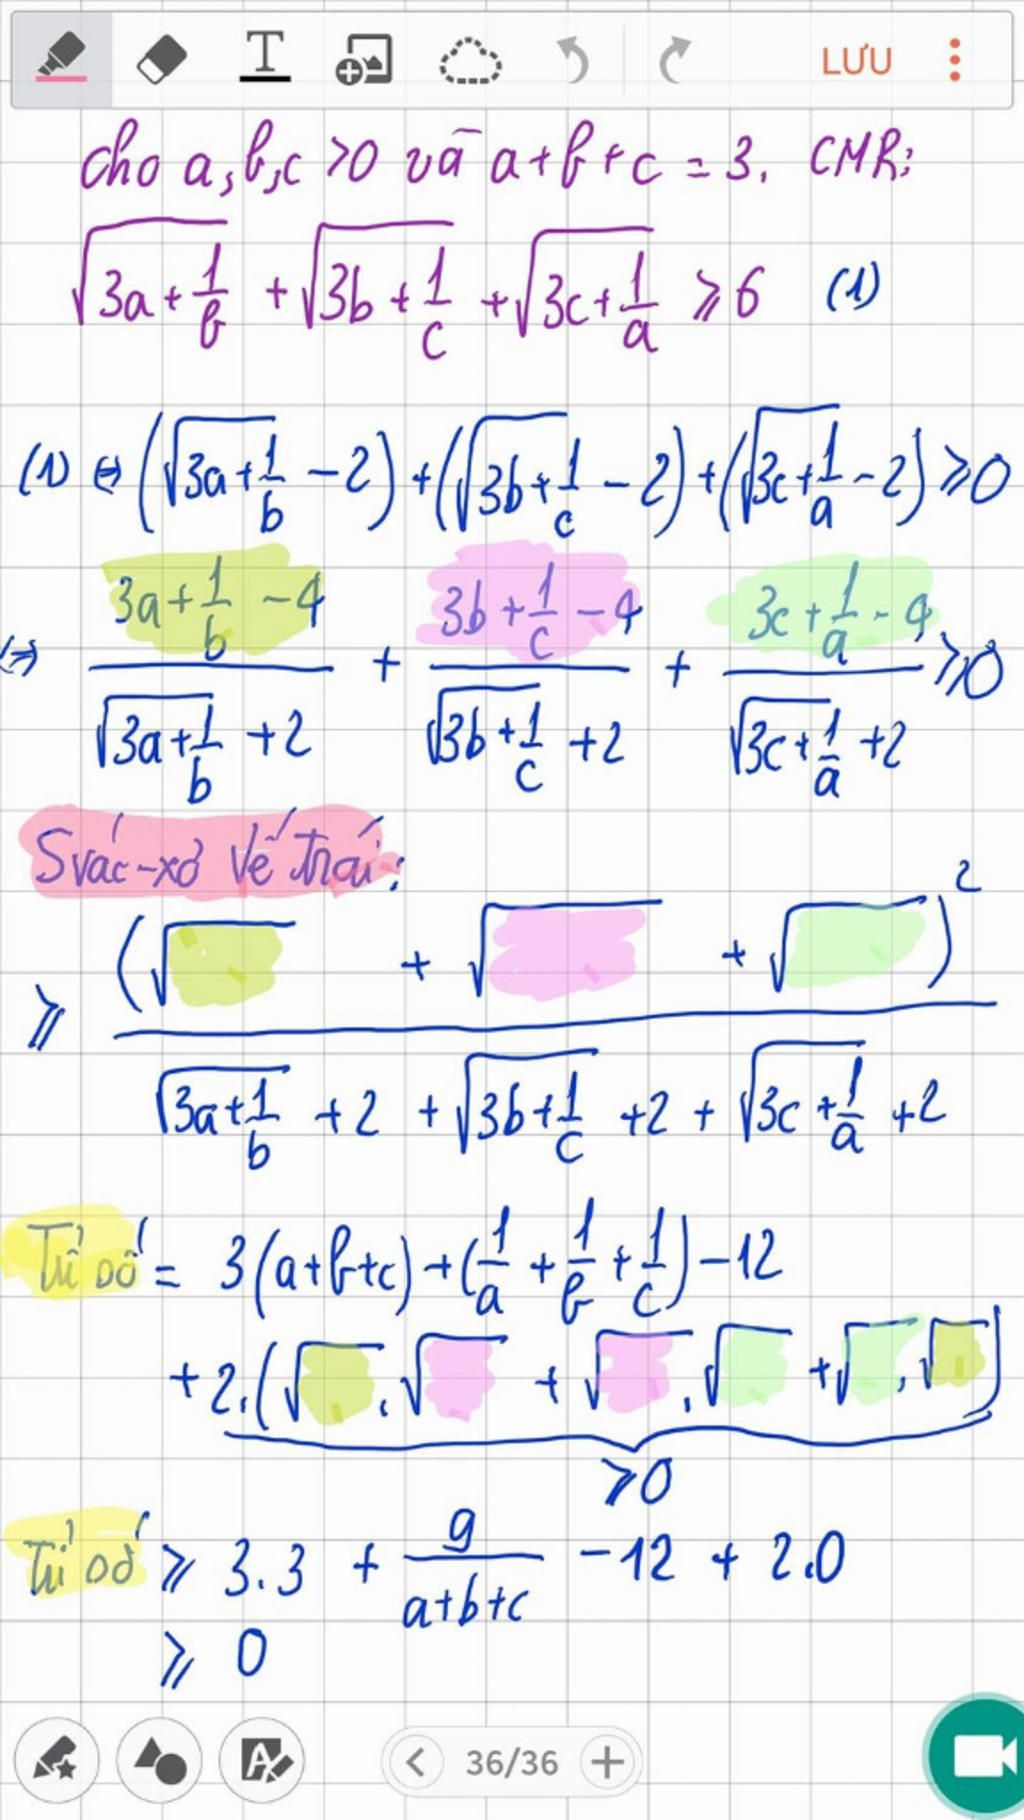 LƯU
Cho a,b,c >0 và a+b+c = 3. CMR:
√(3a+1/b) + √(3b+1/c) + √(3c+1/a) ⩾ 6 (1)
(1) ⇔ (√(3a+1/b) - 2) + (√(3b+1/c) - 2) + (√(3c+1/a) - 2) ⩾ 0
⇔ (3a+1/b - 4)/(√(3a+1/b) + 2) + (3b+1/c - 4)/(√(3b+1/c) + 2) + (3c+1/a - 4)/(√(3c+1/a) + 2) ⩾ 0
Svác-xơ Vế trái:
⩾ (√ + √ + √)²/(√(3a+1/b) + 2 + √(3b+1/c) + 2 + √(3c+1/a) + 2)
Tử số = 3(a+b+c) + (1/a + 1/b + 1/c) - 12
+ 2.(√.√ + √.√ + √.√)
⩾0
Tử số ⩾ 3.3 + 9/(a+b+c) - 12 + 2.0
⩾ 0
36/36